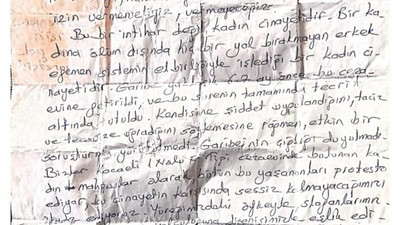 izin vermemeliyiz, vermeyeceğiz
Bu bir intihar değil kadın cinayetidir. Bir ka-
dına ölüm dışında hiç bir yol bırakmayan erkek
egemen sistemin elbirliğiyle işlediği bir kadın ci-
nayetidir. Garibe ay önce bu ceza-
evine getirildi, ve bu sürenin tamamında tecrit
altında tutuldu. Kendisine şiddet uygulandığını, taciz
ve tecavüze uğradığını söylemesine rağmen, etkin bir
soruşturma yürütülmedi. Garibe'nin çığlığı duyulmadı.
Bizler Kocaeli 1 Nolu F Tipi cezaevinde bulunan ka-
dın mahpuslar olarak bütün bu yaşananları protesto
ediyor, bu cinayetin karşısında sessiz kalmayacağımızı
ediyoruz. öfkeyle, sloganlarımız
eşlik edi-